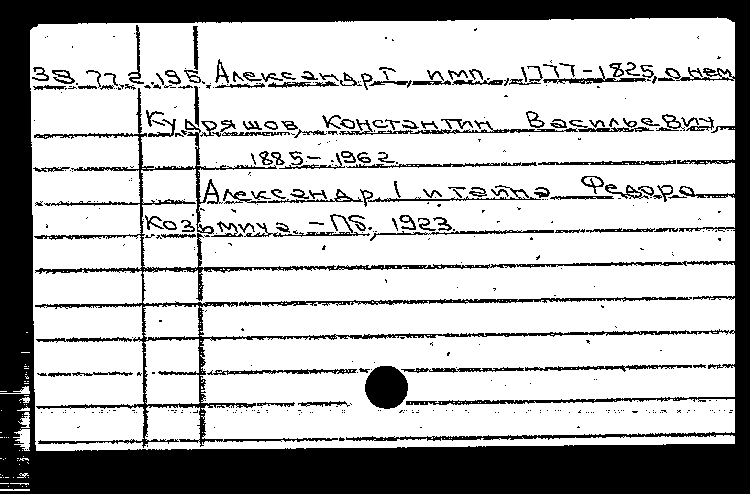 38.77.2.195. Александр I, имп., 1777-1825, о нем
Кудряшов, Константин Васильевич,
1885-1962
Александр I и тайна Федора
Козьмича. - Пб., 1923